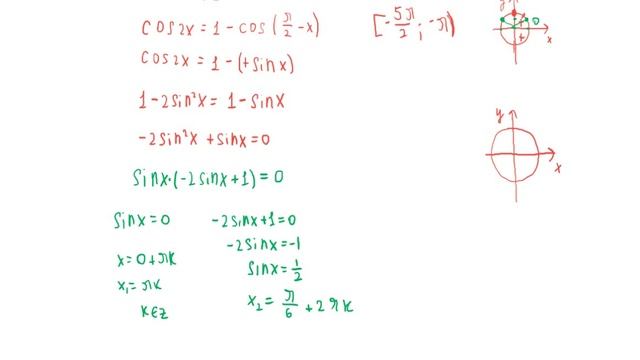 cos2x = 1 - cos(π/2 - x) [-5π/2; -π)
cos2x = 1 - (+sinx)
1 - 2sin²x = 1 - sinx
-2sin²x + sinx = 0
sinx·(-2sinx + 1) = 0
sinx = 0 -2sinx + 1 = 0
-2sinx = -1
x = 0 + πk sinx = 1/2
x₁ = πk
k∈z x₂ = π/6 + 2πk
y
0
x
y
x